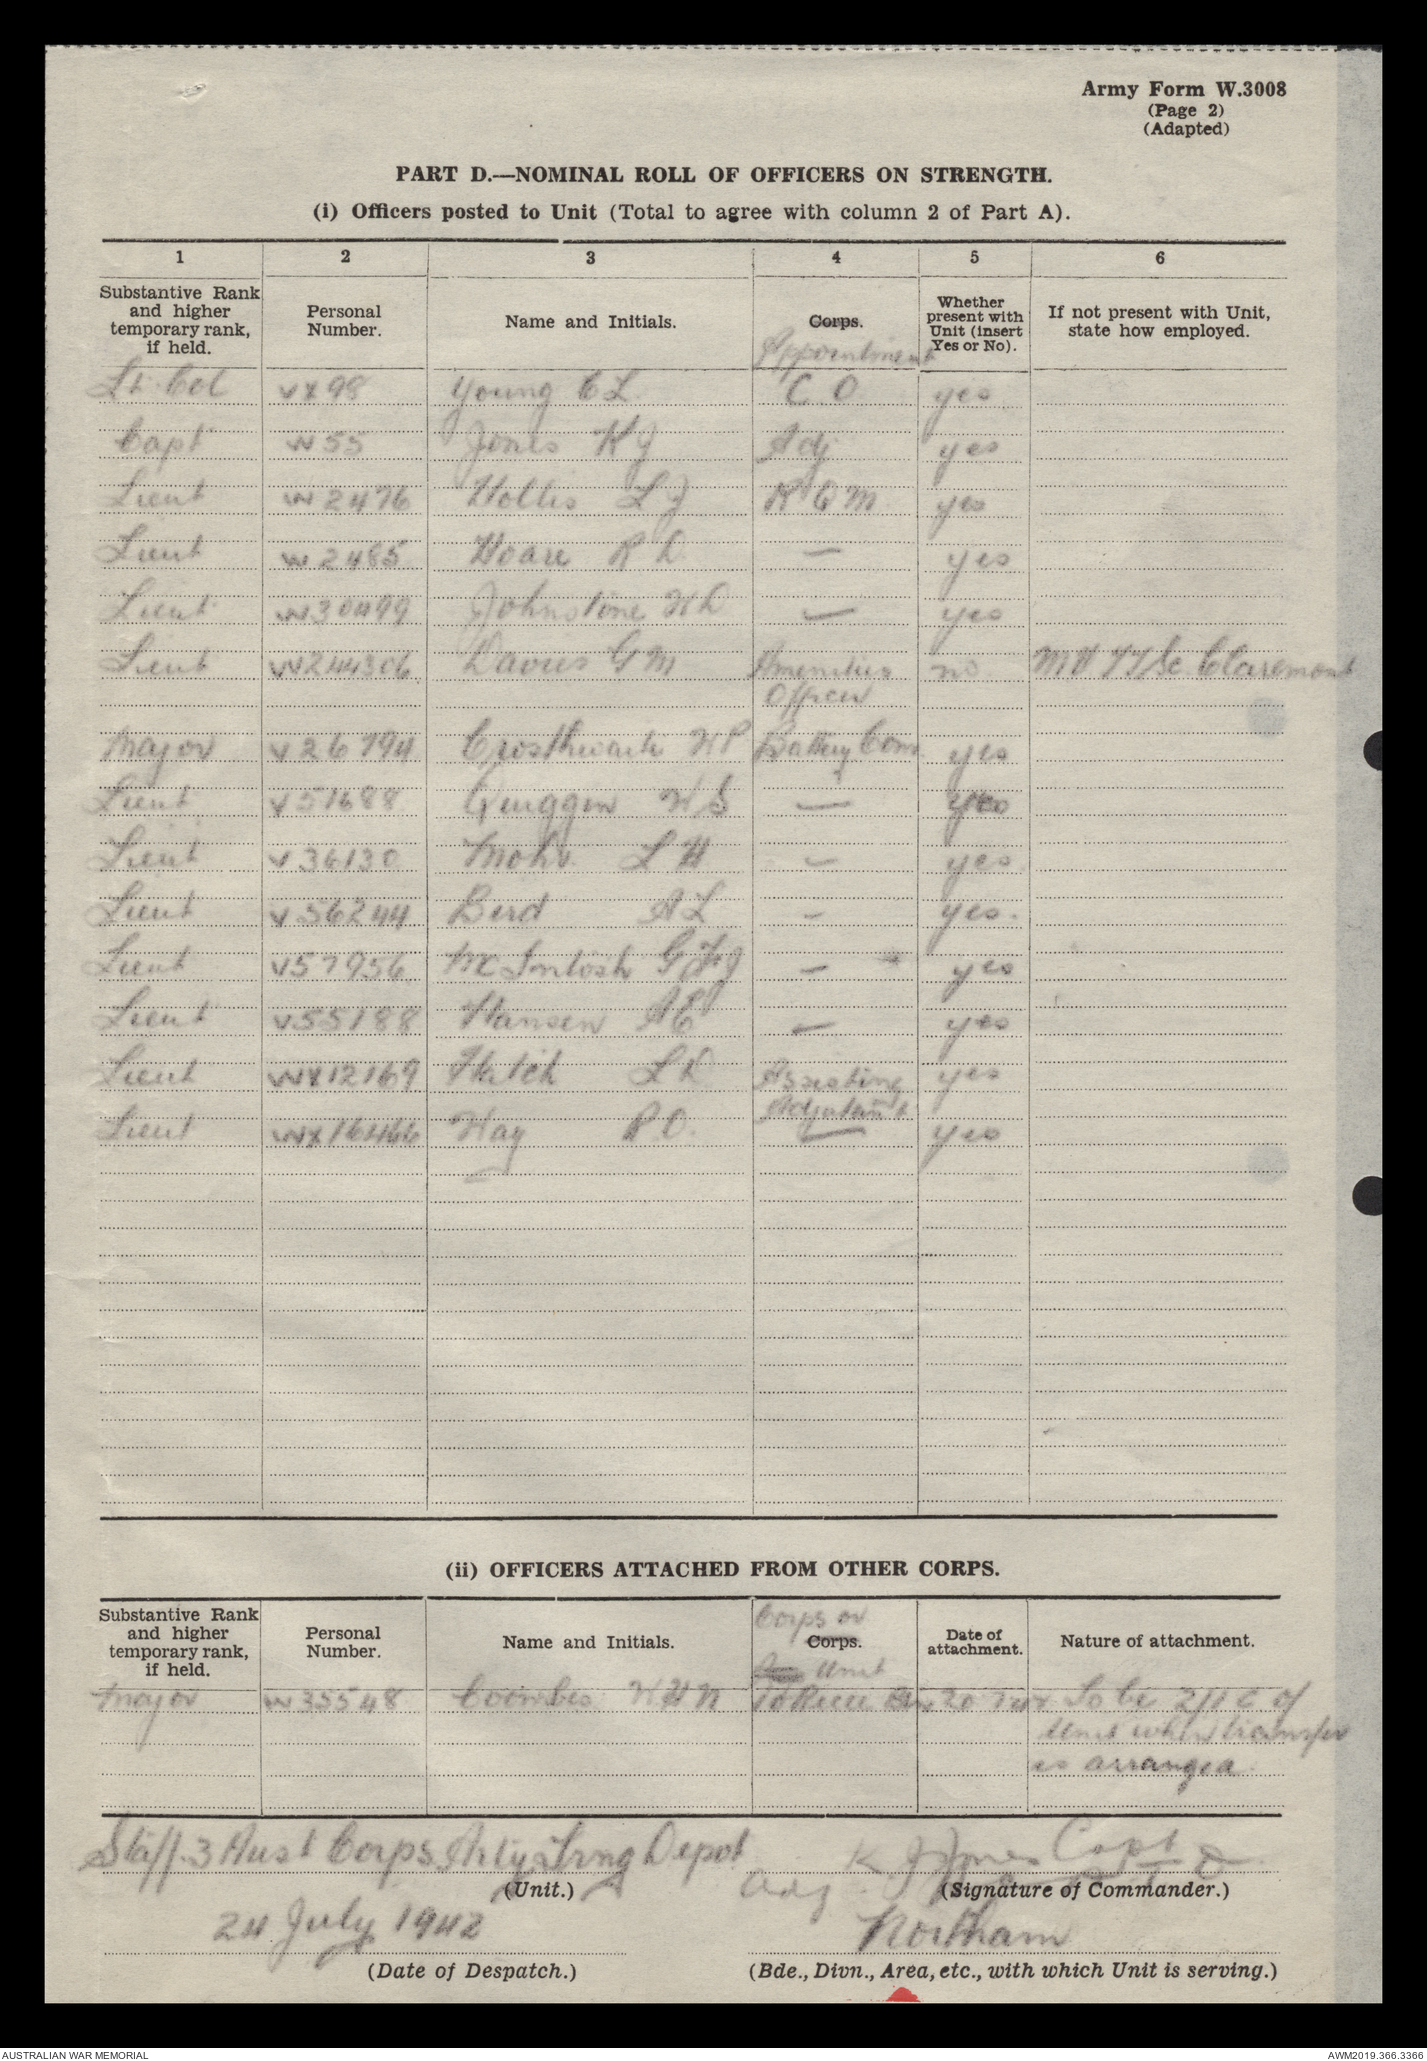 Army Form W.3008
(Page 2)
(Adapted)
PART D.—NOMINAL ROLL OF OFFICERS ON STRENGTH.
(i) Officers posted to Unit (Total to agree with column 2 of Part A).
1 2 3 4 5 6
Substantive Rank and higher temporary rank, if held. Personal Number. Name and Initials. Corps. Appointment Whether present with Unit (insert Yes or No). If not present with Unit, state how employed.
Lt. Col VX98 Young C L C O. yes
Capt W55 Jones K J Adj yes
Lieut W2476 Hollis L J R Q M. yes
Lieut W2485 Hoare R L — yes
Lieut W30499 Johnstone W D — yes
Lieut W244306 Davies G M Amenities no
Officer
Claremont
Major V26794 Crosthwaite W P Battery Com. yes
Lieut V51688 Quiggin W S — yes
Lieut V36130 Mohr L H — yes
Lieut V56244 Bird A L — yes.
Lieut V57956 McIntosh G F J — yes
Lieut V55188 Hansen A E — yes
Lieut WX12169 L L Assisting yes
Adjutant
Lieut WX16466 Hay R O. — yes
(ii) OFFICERS ATTACHED FROM OTHER CORPS.
Substantive Rank and higher temporary rank, if held. Personal Number. Name and Initials. Corps or Corps. Unit Date of attachment. Nature of attachment.
Major W35548 Coombes W H N 10 Recce Bn 20 7 42 To be 2/I C of
Unit when transfer
is arranged.
Staff. 3 Aust Corps Arty Trng Depot K J Jones Capt
(Unit.) Adj. (Signature of Commander.)
24 July 1942 Northam
(Date of Despatch.) (Bde., Divn., Area, etc., with which Unit is serving.)
AUSTRALIAN WAR MEMORIAL AWM2019.366.3366